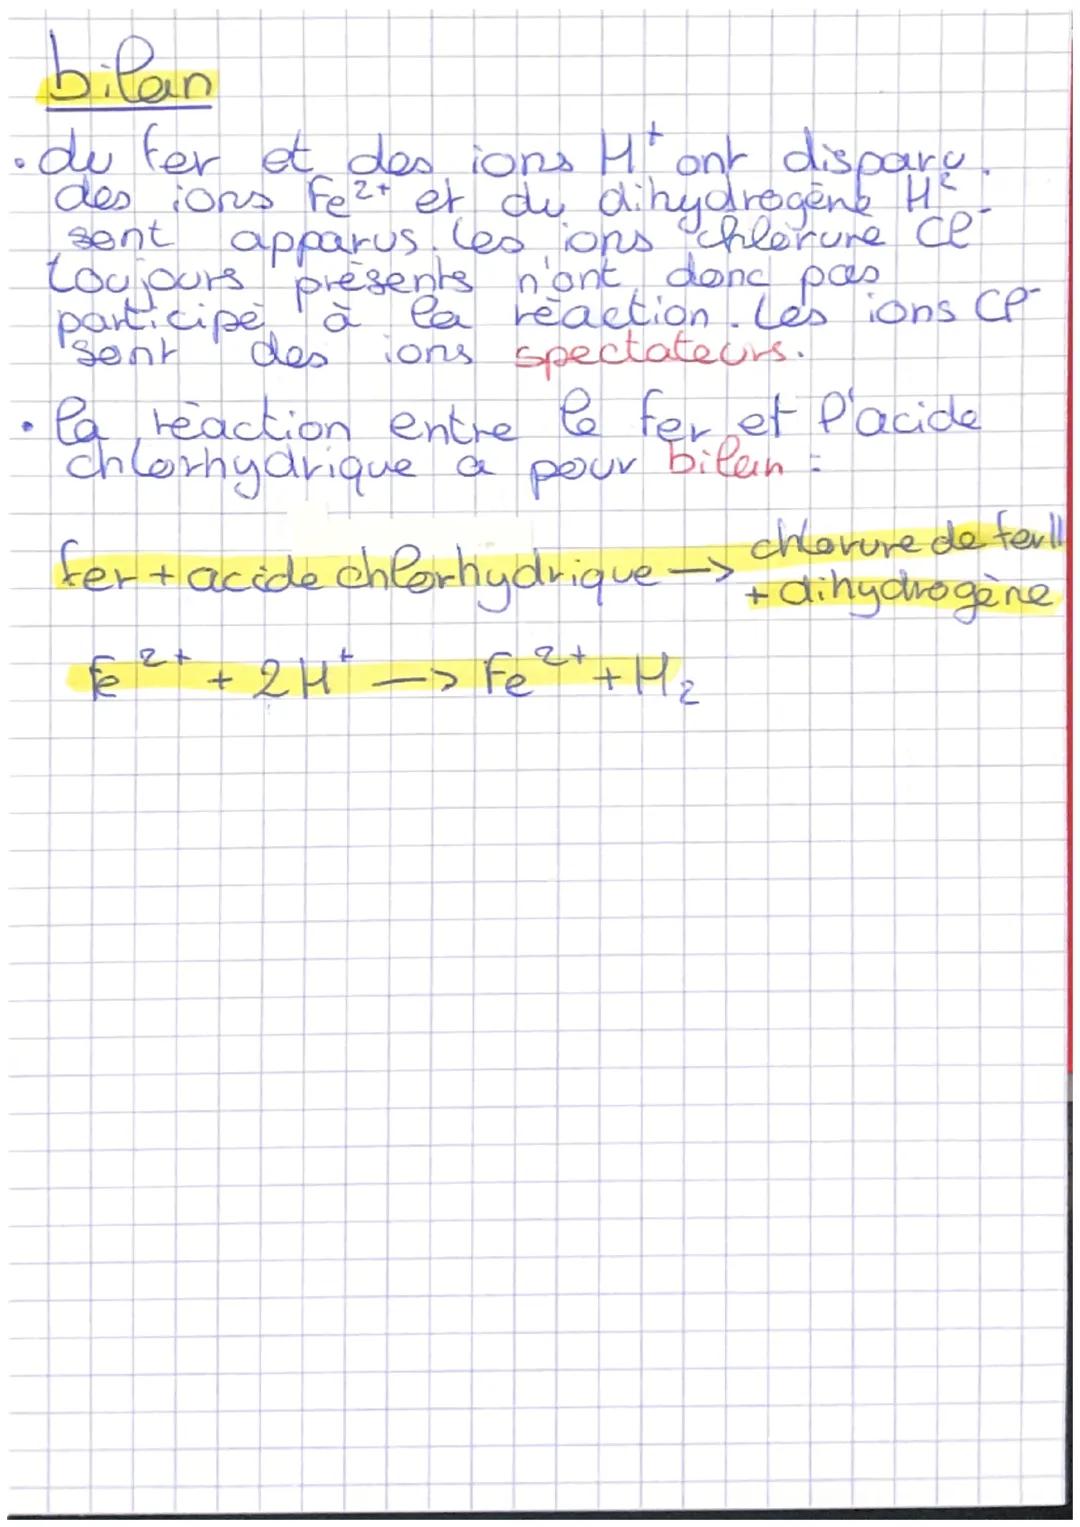 bilan
• du fer et des ions H⁺ ont disparu.
des ions Fe²⁺ et du dihydrogène H²
sont apparus. les ions chlorure Cl⁻
toujours présents n'ont donc pas
participé à la réaction. Les ions Cl⁻
sont des ions spectateurs.
• la réaction entre le fer et l'acide
chlorhydrique a pour bilan :
fer + acide chlorhydrique → chlorure de fer II
+ dihydrogène
Fe²⁺ + 2H⁺ → Fe²⁺ + H₂